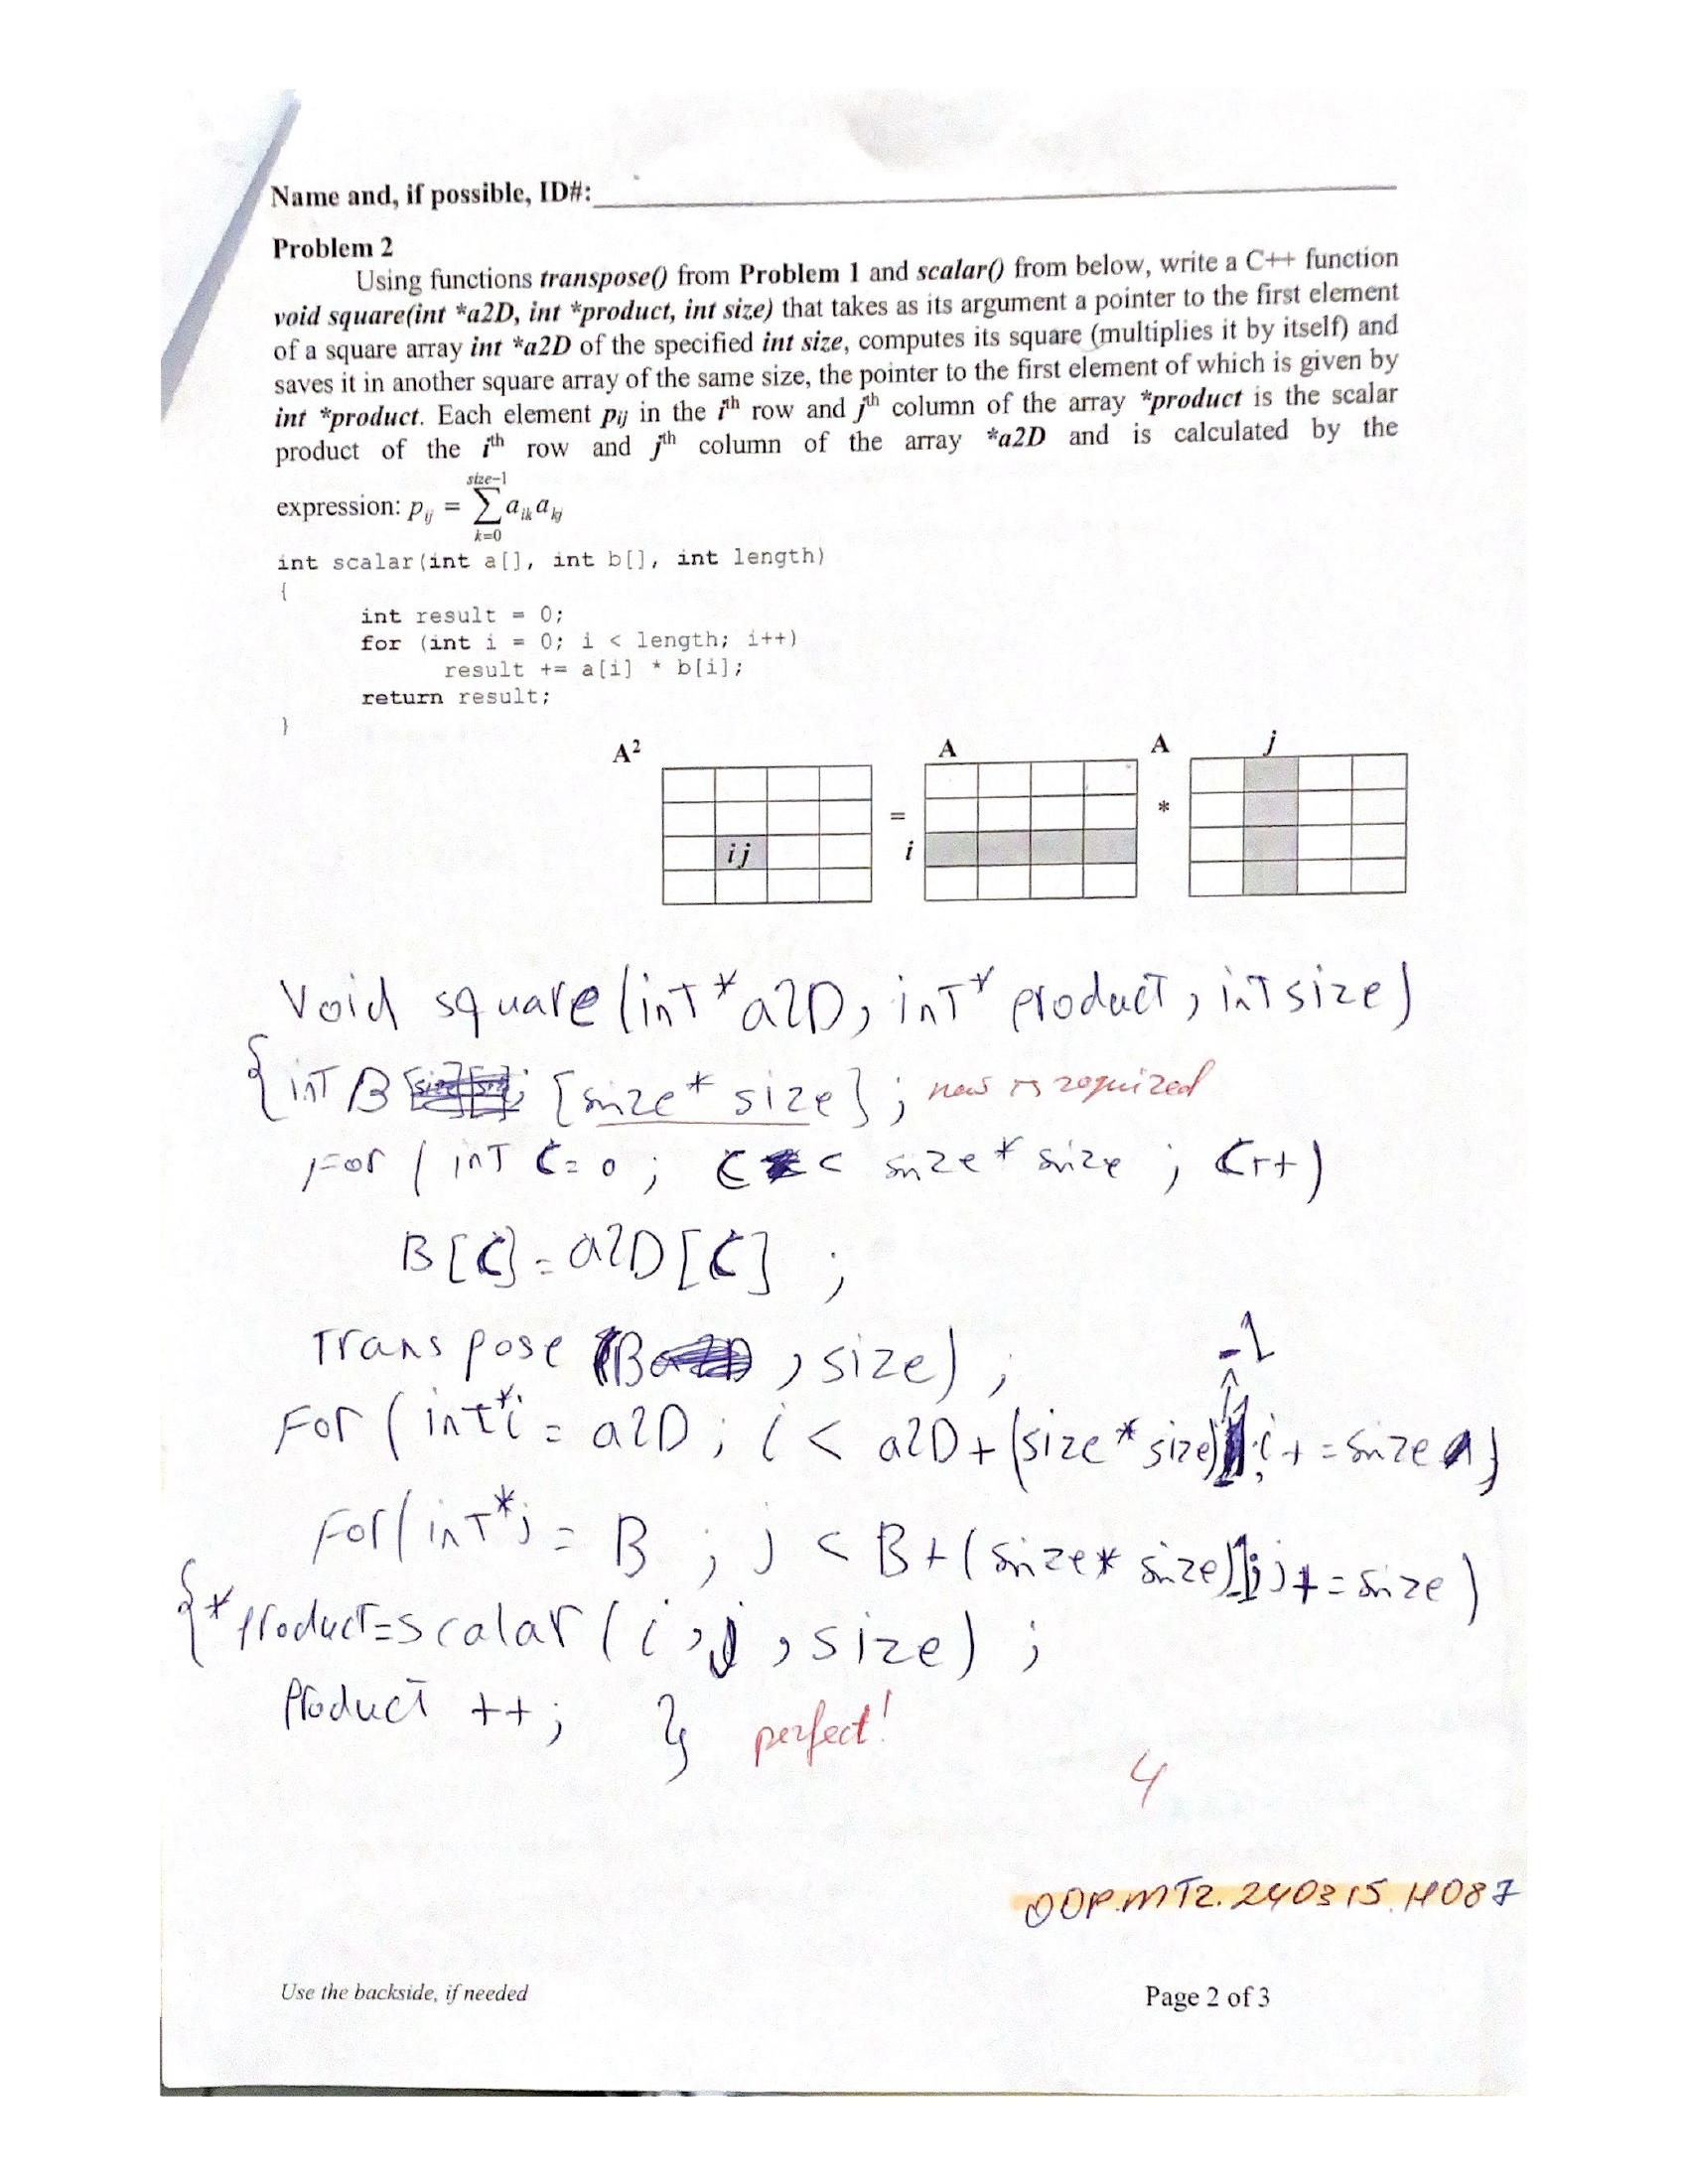 Name and, if possible, ID#:
Problem 2
Using functions transpose() from Problem 1 and scalar() from below, write a C++ function
void square(int *a2D, int *product, int size) that takes as its argument a pointer to the first element
of a square array int *a2D of the specified int size, computes its square (multiplies it by itself) and
saves it in another square array of the same size, the pointer to the first element of which is given by
int *product. Each element pij in the ith row and jth column of the array *product is the scalar
product of the ith row and jth column of the array *a2D and is calculated by the
expression: pij = size-1 ∑ k=0 aik akj
int scalar(int a[], int b[], int length)
{
int result = 0;
for (int i = 0; i < length; i++)
result += a[i] * b[i];
return result;
}
A² A A j
= *
ij i
Void square(int* a2D, int* product, int size)
{int B [size* size]; new is required
For (int C=0; C < size* size; C++)
B[C]=a2D[C];
Transpose (B, size);
-1
For (int*i = a2D; i < a2D+(size*size); i+=size)
For(int*j = B; j < B+(size*size); j+=size)
{*product=scalar(i,j,size);
Product ++; } perfect!
4
OOP.MT2.240315.H087
Use the backside, if needed Page 2 of 3